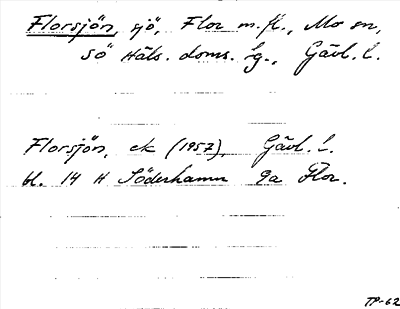 Florsjön, sjö, Flor m.fl., Mo sn,
SÖ Häls. doms. sg., Gävl. l.
Florsjön, ek (1957), Gävl. l.
bl. 14 H Söderhamn 9a Flor.
TP-62